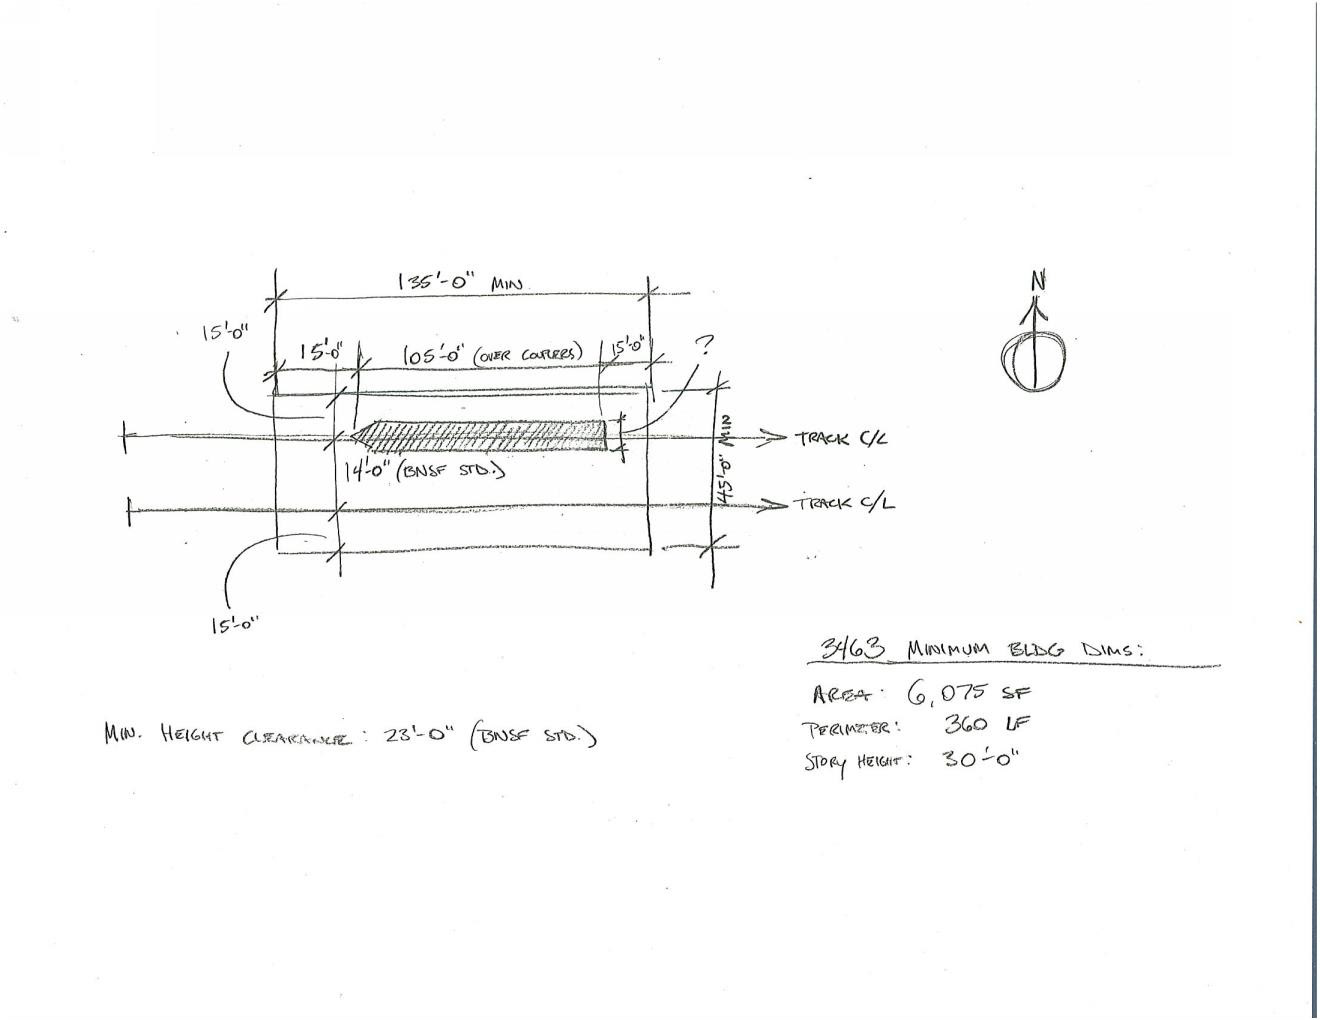 N
135'-0" MIN
15'-0"
15'-0"
105'-0" (OVER COUPLERS)
15'-0"
?
TRACK C/L
14'-0" (BNSF STD.)
45'-0" MIN
TRACK C/L
15'-0"
3463 MINIMUM BLDG DIMS:
AREA: 6,075 SF
PERIMETER: 360 LF
STORY HEIGHT: 30'-0"
MIN. HEIGHT CLEARANCE: 23'-0" (BNSF STD.)